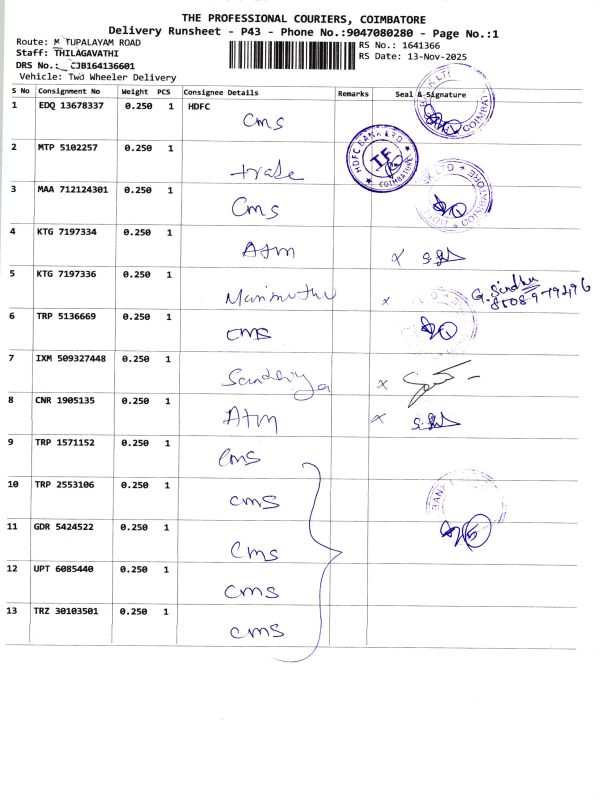 THE PROFESSIONAL COURIERS, COIMBATORE
Delivery Runsheet - P43 - Phone No.:9047080280 - Page No.:1
Route: M TUPALAYAM ROAD
Staff: THILAGAVATHI
DRS No.: CJB164136601
Vehicle: Two Wheeler Delivery
RS No.: 1641366
RS Date: 13-Nov-2025
S No Consignment No Weight PCS Consignee Details Remarks Seal & Signature
1 EDQ 13678337 0.250 1 HDFC
cms
2 MTP 5102257 0.250 1
trade
HDFC BANK LTD
TF
COIMBATORE
3 MAA 712124301 0.250 1
Cms
4 KTG 7197334 0.250 1
Atm x
5 KTG 7197336 0.250 1
Marimuthu x G. Sindhu
6 TRP 5136669 0.250 1
cms
7 IXM 509327448 0.250 1
Sandhiya x
8 CNR 1905135 0.250 1
Atm x
9 TRP 1571152 0.250 1
cms
10 TRP 2553106 0.250 1
cms
11 GDR 5424522 0.250 1
cms
12 UPT 6085440 0.250 1
cms
13 TRZ 30103501 0.250 1
cms